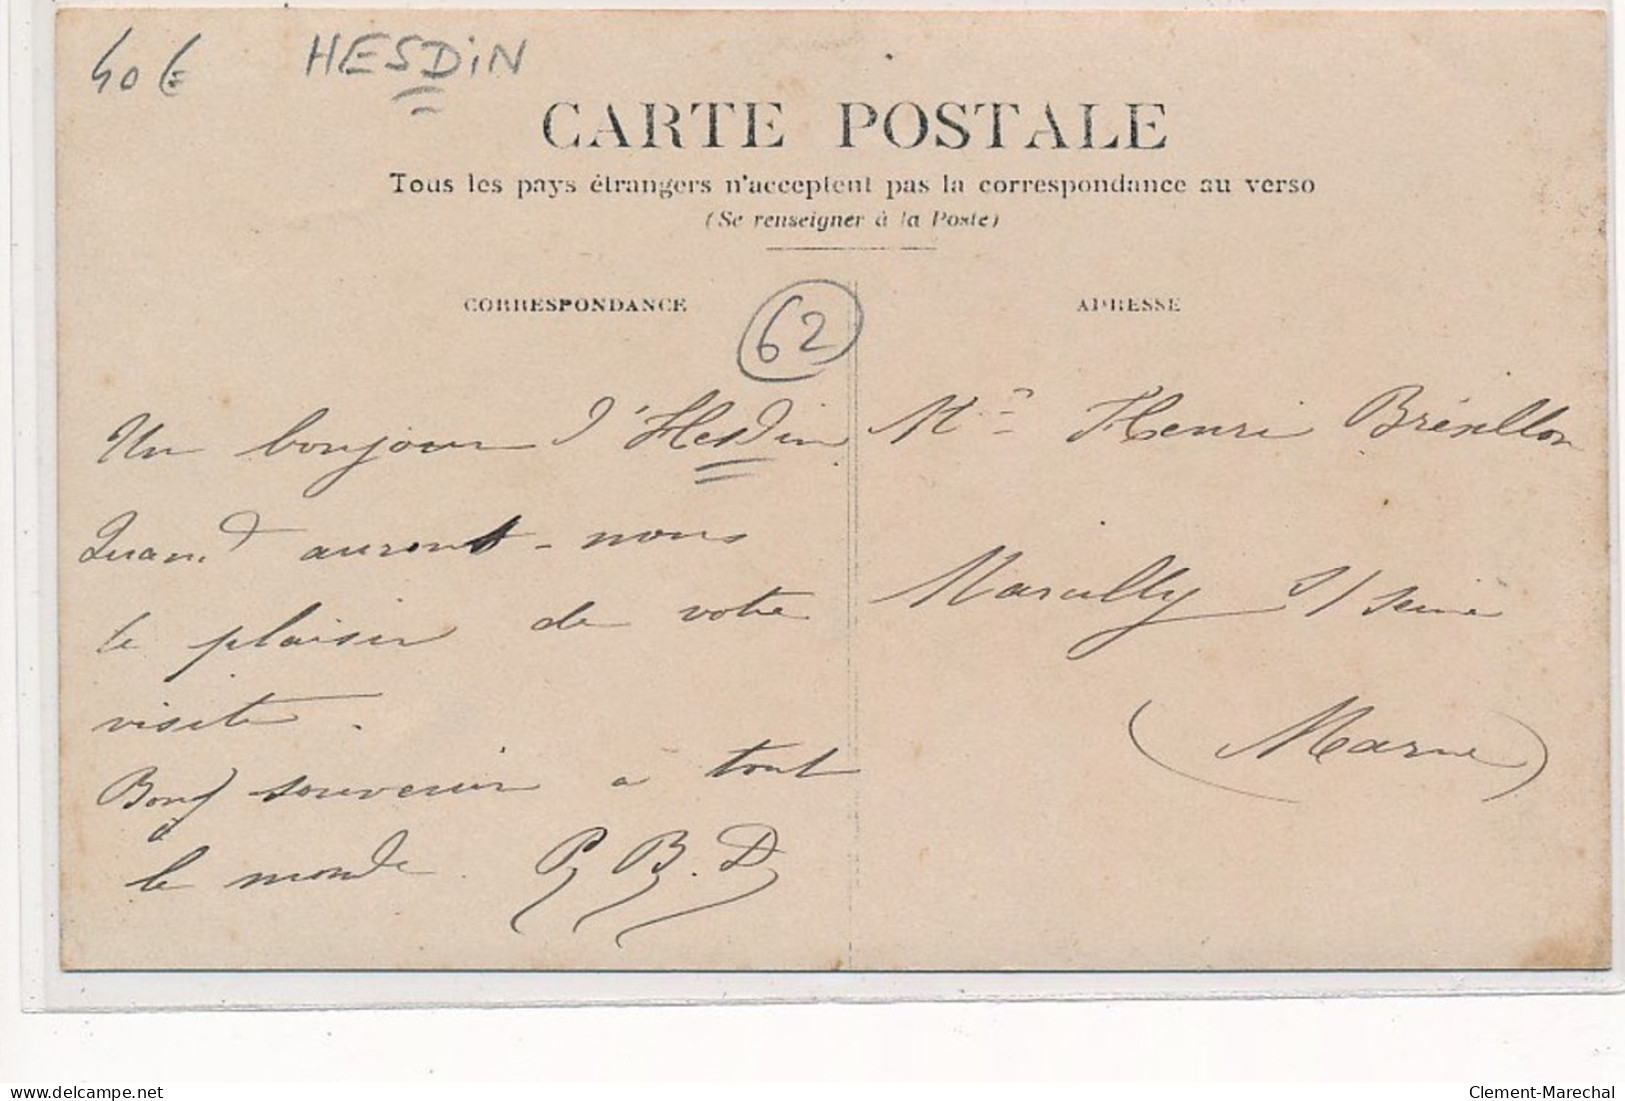 40 €
HESDiN
CARTE POSTALE
Tous les pays étrangers n'acceptent pas la correspondance au verso
(Se renseigner à la Poste)
CORRESPONDANCE
62
ADRESSE
Un bonjour d'Hesdin
Quand aurons-nous
le plaisir de votre
visite.
Bons souvenir à tout
le monde. P. B. D
Mr Henri Brésillon
Marcilly s/ Seine
(Marne)
delcampe.net
Clement-Marechal